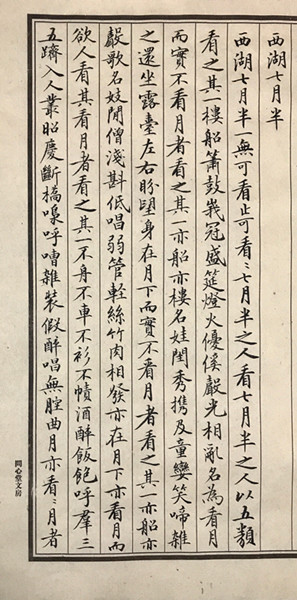 西湖七月半
西湖七月半一無可看止可看〻七月半之人看七月半之人以五類
看之其一樓船簫鼓峩冠盛筵燈火優傒聲光相亂名為看月
而實不看月者看之其一亦船亦樓名娃閨秀携及童孌笑啼雜
之還坐露臺左右盼望身在月下而實不看月者看之其一亦船亦
聲歌名妓閒僧淺斟低唱弱管輕絲竹肉相發亦在月下亦看月而
欲人看其看月者看之其一不舟不車不衫不幘酒醉飯飽呼羣三
五躋入人叢昭慶斷橋嘄呼嘈雜裝假醉唱無腔曲月亦看〻月者
問心堂文房